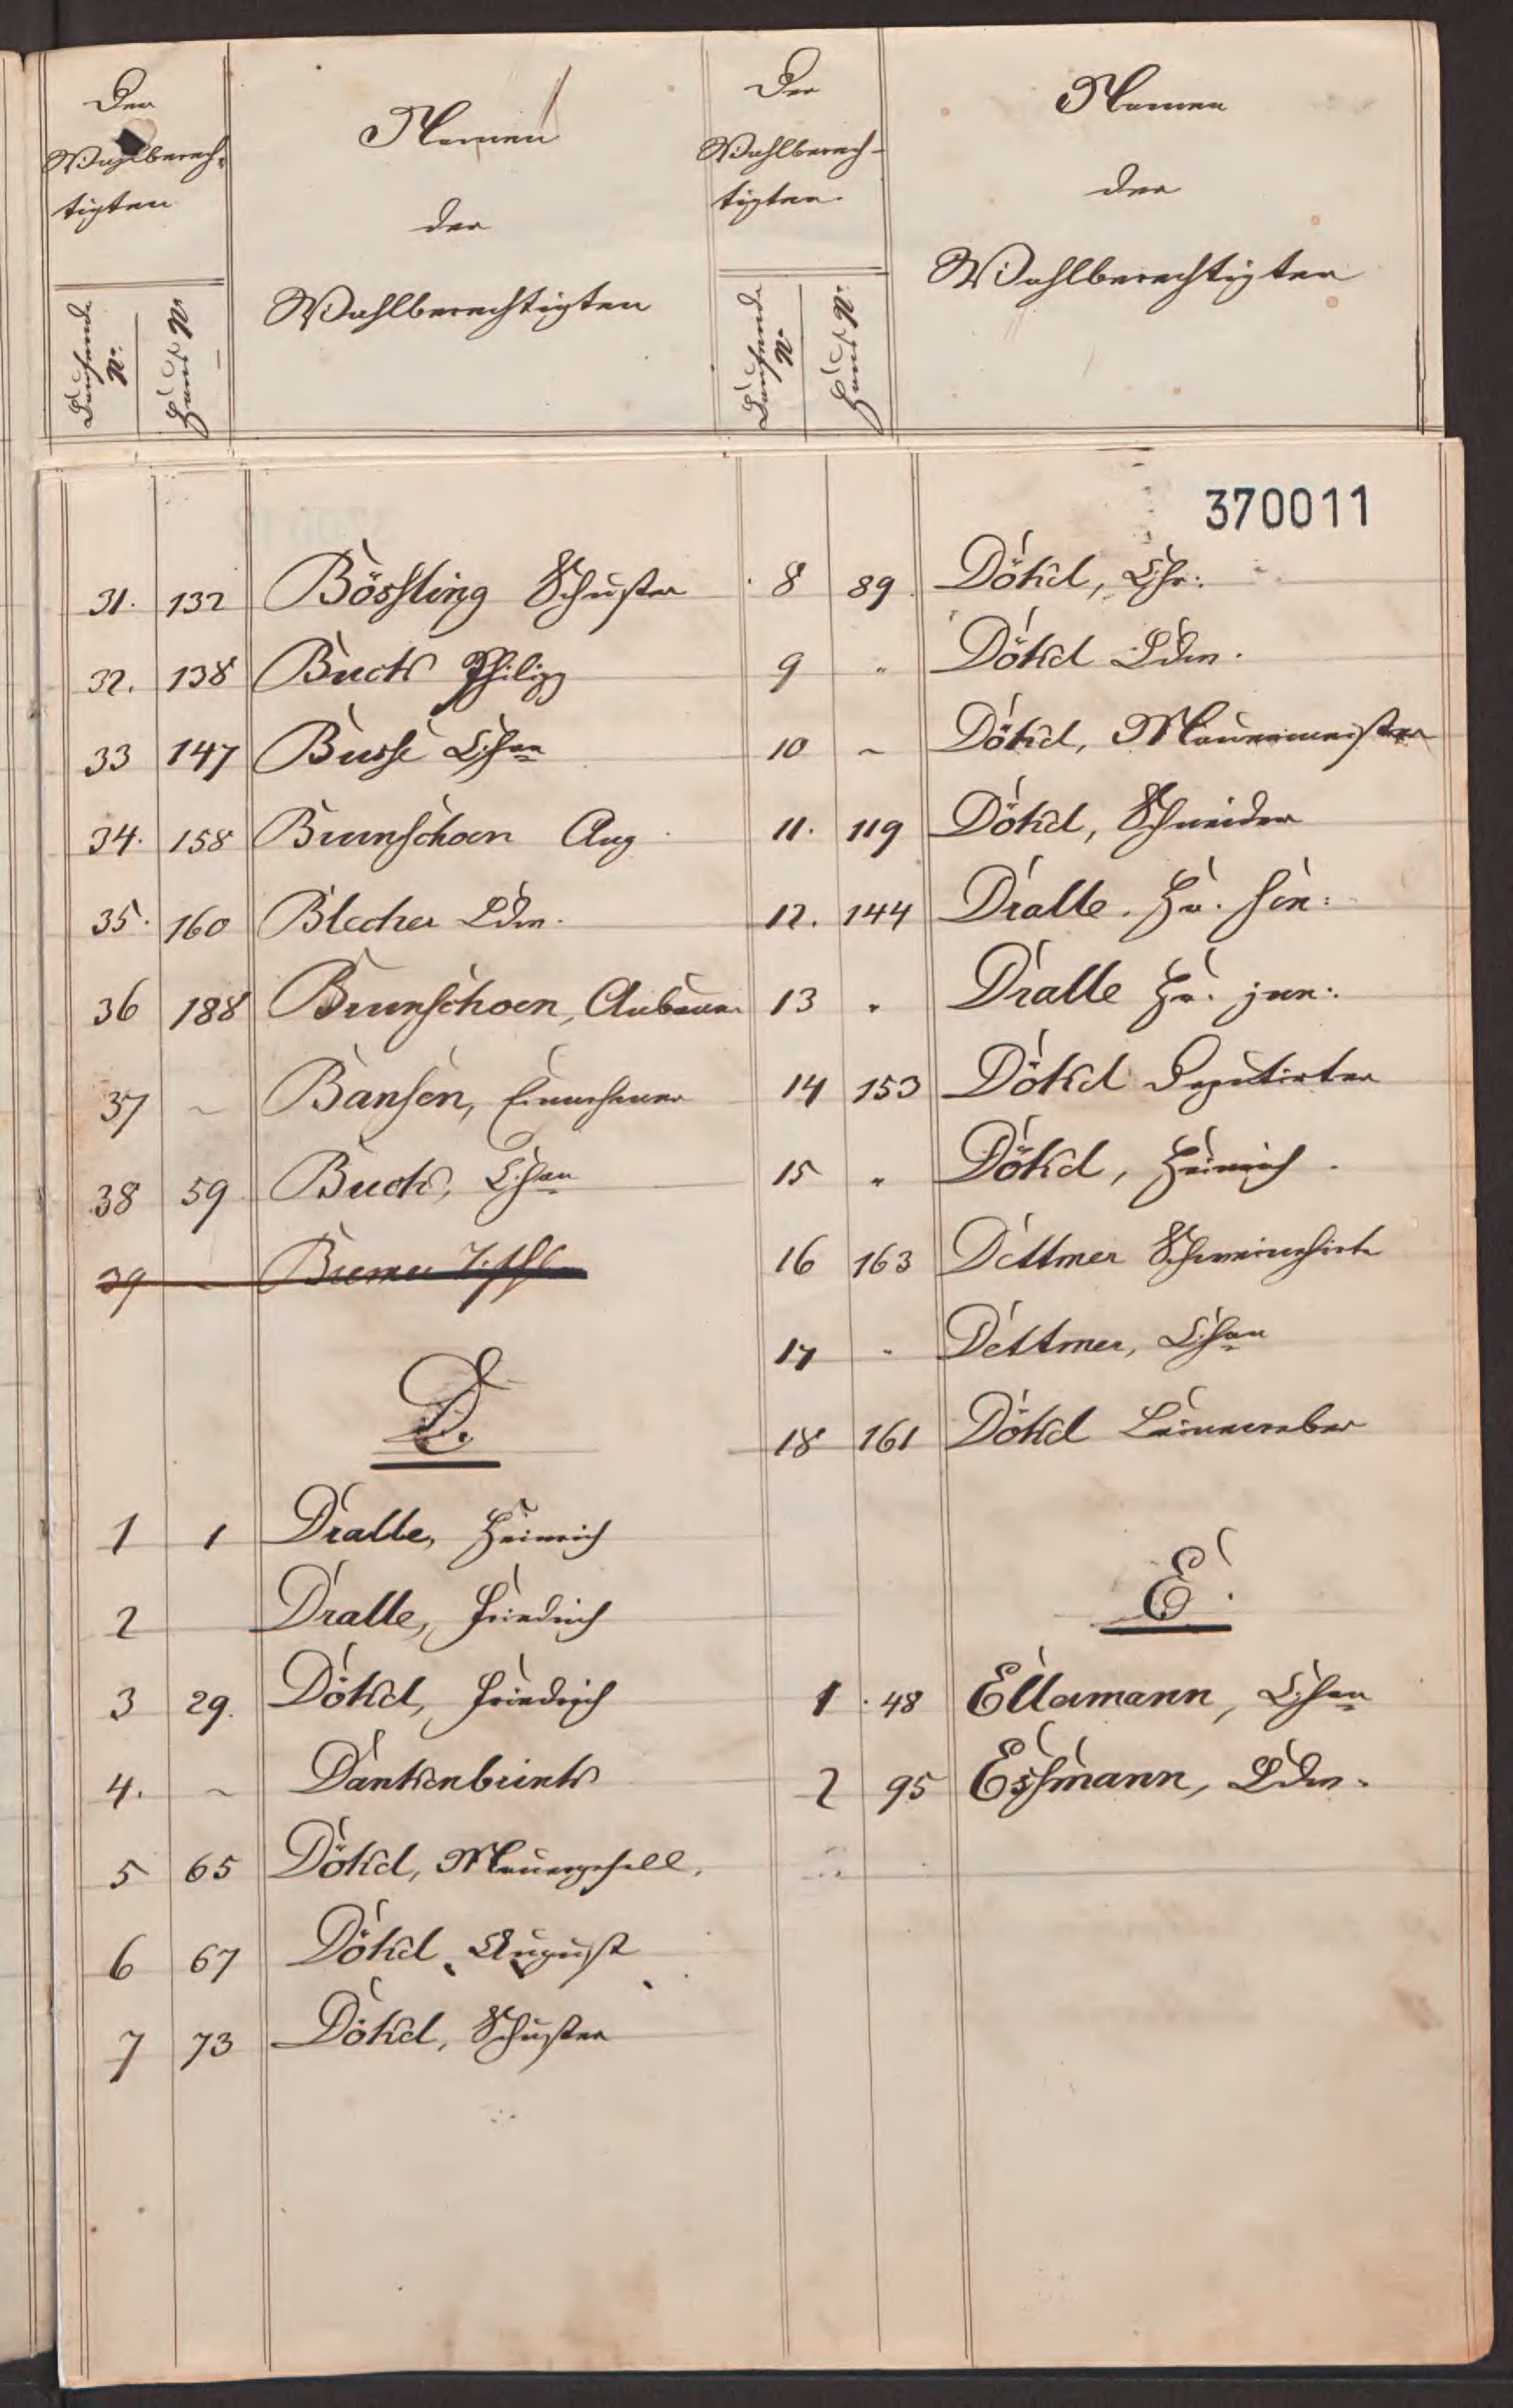 Der
Wahlberech-
tigten
Laufende
No.
Haus No.
Namen
der
Wahlberechtigten
31. 132 Bössling Schuster
32. 138 Buck Philipp
33 147 Busse Chr.
34. 158 Brunschoen Aug
35. 160 Blecher Ldw.
36 188 Brunschoen, Anbauer
37 ~ Bansen, Einwohner
38 59 Buck, Chr.
39 ~ Bremer
D.
1 1 Dralle, Heinrich
2 Dralle, Friedrich
3 29. Dökel, Friedrich
4. ~ Dankenbrink
5 65 Dökel, Mauergesell.
6 67 Dökel, August
7 73 Dökel, Schuster
Der
Wahlberech-
tigten
Laufende
No.
Haus No.
Namen
der
Wahlberechtigten
370011
8 89 Dökel, Chr:
9 " Dökel Ldw.
10 ~ Dökel, Mauermeister
11. 119 Dökel, Schneider
12. 144 Dralle. Hr. sen:
13 " Dralle Hr. jun:
14 153 Dökel Deputirter
15 " Dökel, Heinrich
16 163 Dettmer Schweinehirte
17 " Dettmer, Chr.
18 161 Dökel Leineweber
E.
1 48 Ellermann, Chr.
2 95 Essmann, Ldw.